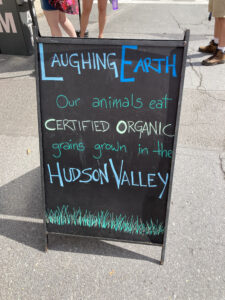 LAUGHING EARTH
Our animals eat
CERTIFIED ORGANIC
grains grown in the
HUDSON VALLEY